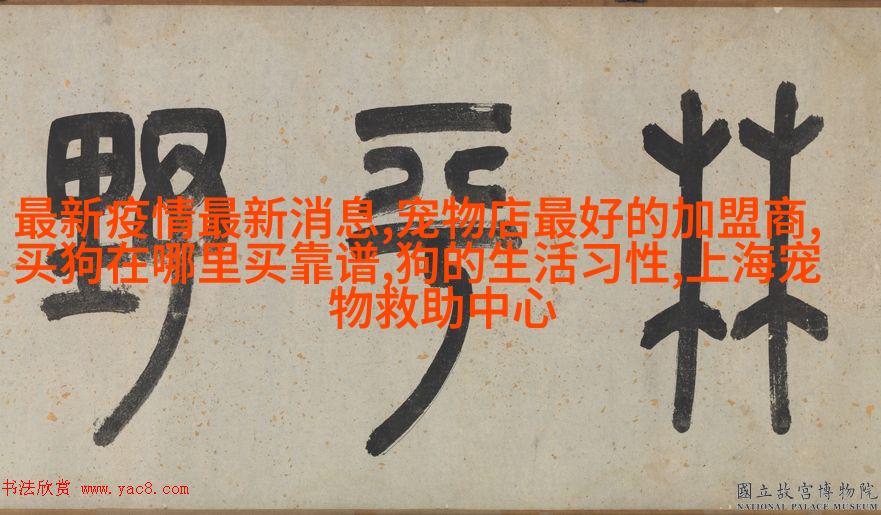 林 野
最新疫情最新消息,宠物店最好的加盟商,
买狗在哪里买靠谱,狗的生活习性,上海宠
物救助中心
书法欣赏 www.yac8.com
國立故宮博物院
NATIONAL PALACE MUSEUM